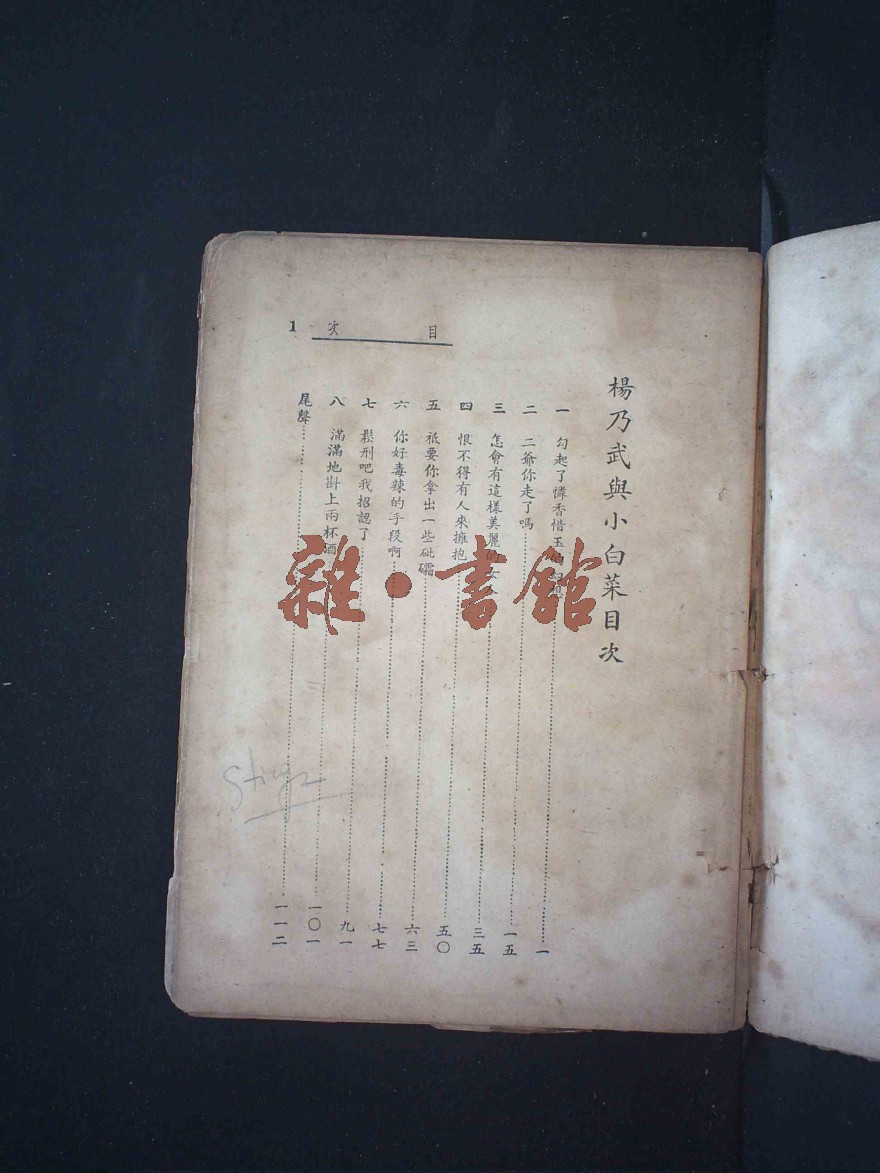 楊乃武與小白菜目次
目次 1
一 勾起了憐香惜玉的 一
二 二爺你走了嗎 一五
三 怎會有這樣美麗的女 三五
四 恨不得有人來擁抱 五〇
五 祇要你拿出一些砒霜 六三
六 你好毒辣的手段啊 七七
七 鬆刑吧我招認了 九一
八 滿滿地斟上兩杯酒 一〇一
尾聲 一一二
雜·書館